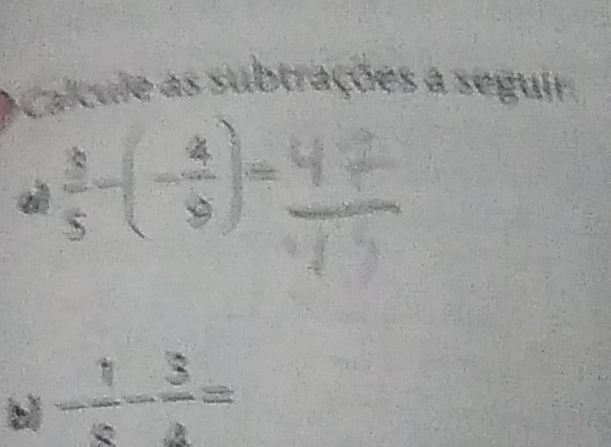 Calcule as subtrações a seguir
a) 3/5 - (-4/9) = 47/45
b) -1/ - 3/ =